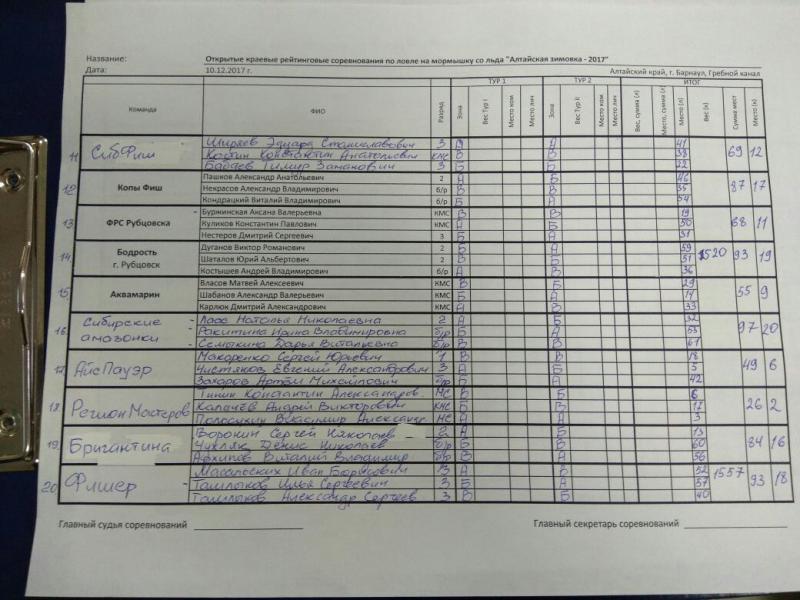 Название: Открытые краевые рейтинговые соревнования по ловле на мормышку со льда "Алтайская зимовка - 2017"
Дата: 10.12.2017 г. Алтайский край, г. Барнаул, Гребной канал
ТУР 1 ТУР 2 ИТОГ
Команда ФИО Разряд Зона Вес Тур I Место ком. Место лич Зона Вес Тур II Место ком. Место лич Вес, сумма (л) Место, сумма (л) Место (л) Вес (к) Сумма мест Место (к)
Ширяев Эдуард Станиславович 3 А 41
11. СибФиш Костин Константин Анатольевич КМС В В 38 69 12
Бабаев Тимур Заманович 3 Б Б 22
Пашков Александр Анатольевич 2 А Б 46
12 Копы Фиш Некрасов Александр Владимирович б/р В В 35 87 17
Кондрацкий Виталий Владимирович б/р Б А 54
- Буржинская Аксана Валерьевна КМС В В 19
13 ФРС Рубцовска Куликов Константин Павлович КМС А А 50 68 11
Нестеров Дмитрий Сергеевич 3 Б Б 51
Дуганов Виктор Романович 2 Б А 59
14. Бодрость г. Рубцовск Шаталов Юрий Альбертович 2 В Б 51 1520 93 19
Костышев Андрей Владимирович б/р А В 36
Власов Матвей Алексеевич КМС В Б 29
15. Аквамарин Шабанов Александр Валерьевич КМС Б А 14 55 9
Карлюк Дмитрий Александрович КМС А В 33
- Лаас Наталья Николаевна 2 А Б 32
16. Сибирские амазонки - Ракитина Ирина Владимировна б/р Б А 53 97 20
- Семыкина Дарья Витальевна б/р В В 61
Макаренко Сергей Юрьевич 1 В В 18
17. АйсПауэр Чистяков Евгений Александрович 3 А А 5 49 6
Захаров Артём Михайлович б/р Б Б 42
Тинин Константин Александров. МС Б Б 6
18. РегионМастеров Калачёв Андрей Викторович КМС В В 12 26 2
Полосухин Владимир Александр. МС А А 3
Воронин Сергей Николаев 2 А Б 13
19. Бригантина Чихляк Денис Николаев б/р Б В 60 84 16
Архипов Виталий Владимир б/р В А 56
Масальских Иван Борисович 3 А В 52
20 Фишер - Ташлыков Илья Сергеевич 3 Б А 57 1557 93 18
Ташлыков Александр Сергеев. 3 В Б 40
Главный судья соревнований Главный секретарь соревнований